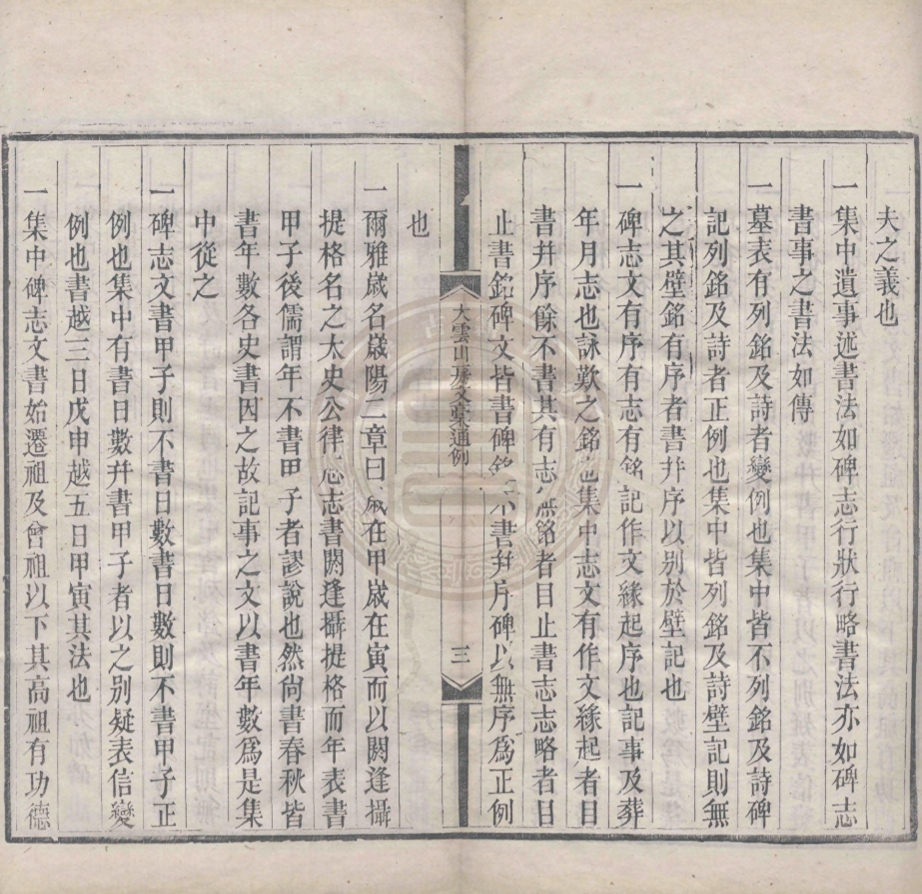 夫之義也
一集中遺事述書法如碑志行狀行略書法亦如碑志
書事之書法如傳
一墓表有列銘及詩者變例也集中皆不列銘及詩碑
記列銘及詩者正例也集中皆列銘及詩壁記則無
之其壁銘有序者書幷序以別於壁記也
一碑志文有序有志有銘記作文緣起序也記事及葬
年月志也詠歎之銘也集中志文有作文緣起者目
書幷序餘不書其有志無銘者目止書志志略者目
止書銘碑文皆書碑銘不書幷序碑以無序爲正例
大雲山房文稾通例
三
也
一爾雅歲名歲陽二章曰歲在甲歲在寅而以閼逢攝
提格名之太史公律志書閼逢攝提格而年表書
甲子後儒謂年不書甲子者謬說也然尙書春秋皆
書年數各史書因之故記事之文以書年數爲是集
中從之
一碑志文書甲子則不書日數書日數則不書甲子正
例也集中有書日數幷書甲子者以之別疑表信變
例也書越三日戊申越五日甲寅其法也
一集中碑志文書始遷祖及曾祖以下其高祖有功德